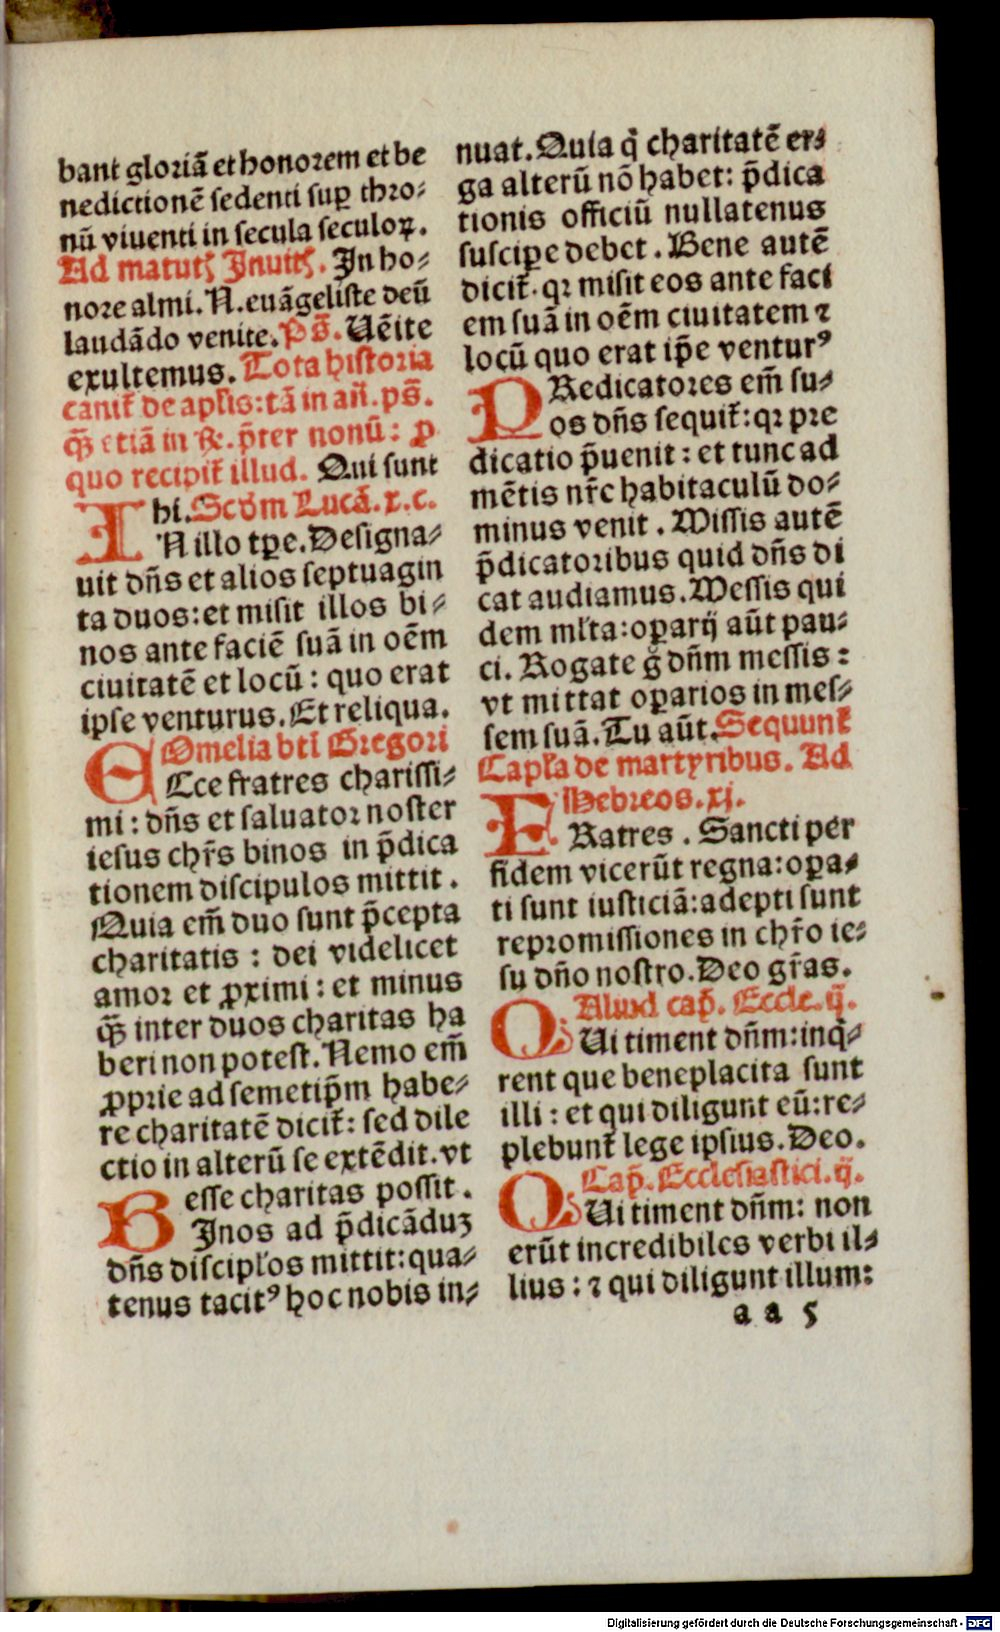 bant gloriã et honorem et be
nedictionē sedenti suꝑ thro⸗
nũ viuenti in secula seculoꝝ.
Ad matutꝭ Inuitꝭ. In ho⸗
nore almi. N. euãgeliste deũ
laudãdo venite. Ps̃. Uẽite
exultemus. Tota historia
canit᷑ de apl̃is: tã in añ. ps̃.
qͣ̃ etiã in ℟. p̃ter nonũ: ꝓ
quo recipit᷑ illud. Qui sunt
hi. Scðm Lucã. x. c.
IN illo tꝑe. Designa⸗
uit dñs et alios septuagin
ta duos: et misit illos bi⸗
nos ante faciē suã in oēm
ciuitatē et locũ: quo erat
ipse venturus. Et reliqua.
Omelia bti̇ Gregori
ECce fratres charissi⸗
mi: dñs et saluator noster
iesus chr̃s binos in p̃dica
tionem discipulos mittit.
Quia em̃ duo sunt p̃cepta
charitatis: dei videlicet
amor et ꝓximi: et minus
qͣ̃ inter duos charitas ha
beri non potest. Nemo em̃
ꝓprie ad semetip̃m habe⸗
re charitatē dicit᷑: sed dile
ctio in alterũ se extēdit. vt
esse charitas possit.
BInos ad p̃dicãduꝫ
dñs discipl̃os mittit: qua⸗
tenus tacitꝰ hoc nobis in⸗
nuat. Quia q̇ charitatē er⸗
ga alterũ nõ habet: p̃dica
tionis officiũ nullatenus
suscipꝑe debet. Bene autē
dicit᷑. qꝛ misit eos ante faci
em suã in oēm ciuitatem ⁊
locũ quo erat ip̃e venturꝰ
PRedicatores em̃ su⸗
os dñs sequit᷑: qꝛ pre
dicatio p̃uenit: et tunc ad
mētis nr̃e habitaculũ do⸗
minus venit. Missis autē
p̃dicatoribus quid dñs di
cat audiamus. Messis qui
dem ml̃ta: oꝑarij aũt pau⸗
ci. Rogate g̊ dñm messis:
vt mittat oꝑarios in mes⸗
sem suã. Tu aũt. Sequunt᷑
Capl̃a de martyribus. Ad
Hebreos. xj.
FRatres. Sancti per
fidem vicerũt regna: oꝑa⸗
ti sunt iusticiã: adepti sunt
repromissiones in chr̃o ie⸗
su dño nostro. Deo gr̃as.
Aliud cap̃. Eccle. ij.
QUi timent dñm: inq̇⸗
rent que beneplacita sunt
illi: et qui diligunt eũ: re⸗
plebunt᷑ lege ipsius. Deo.
Cap̃. Ecclesiastici. ij.
QUi timent dñm: non
erũt incredibiles verbi il⸗
lius: ⁊ qui diligunt illum:
a a 5
Digitalisierung gefördert durch die Deutsche Forschungsgemeinschaft - DFG